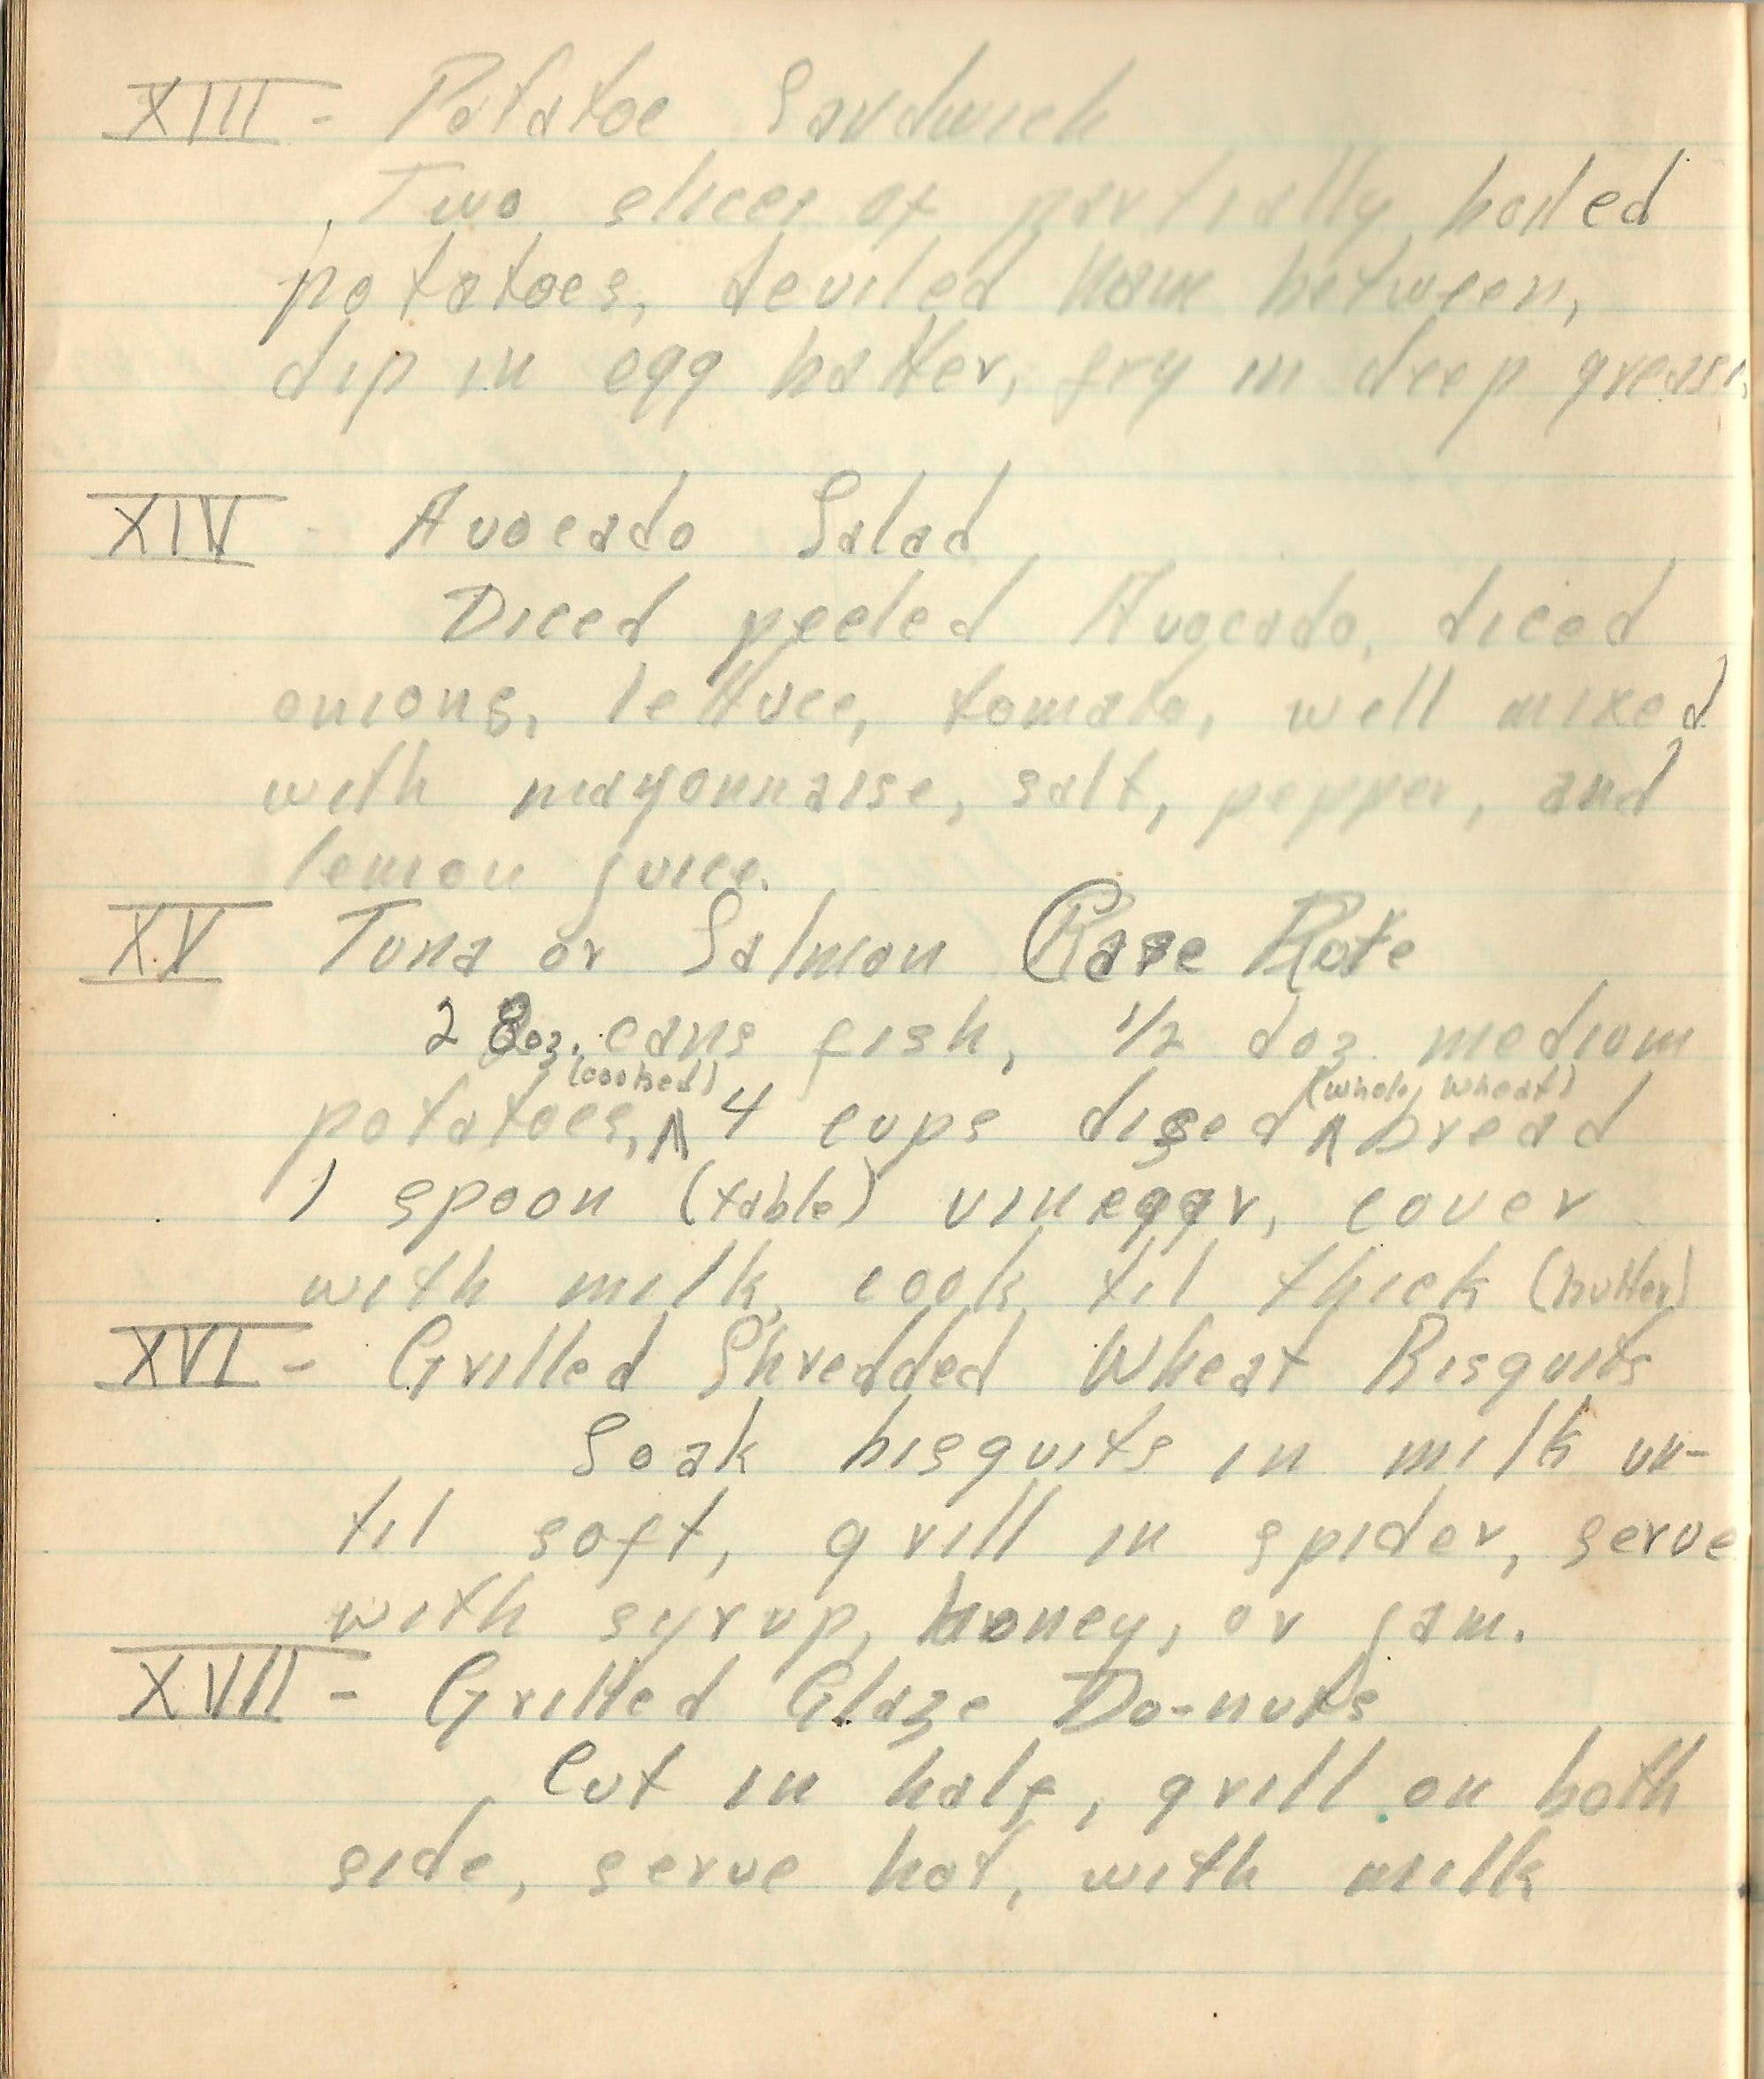 XIII - Potatoe Sandwich
Two slices of partially boiled
potatoes, deviled ham between,
dip in egg batter, fry in deep grease.
XIV - Avocado Salad
Diced peeled Avocado, diced
onions, lettuce, tomato, well mixed
with mayonnaise, salt, pepper, and
lemon juice.
XV Tuna or Salmon Rote
2 8oz. cans fish, 1/2 doz medium
(cooked) (whole wheat)
potatoes, ^ 4 cups diced ^ bread
1 spoon (table) vinegar, cover
with milk, cook til thick (butter)
XVI - Grilled Shredded Wheat Bisquits
Soak bisquits in milk un-
til soft, grill in spider, serve
with syrup, honey, or jam.
XVII - Grilled Glaze Do-nuts
Cut in half, grill on both
side, serve hot, with milk